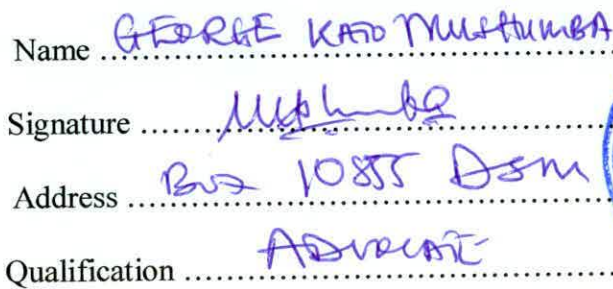 Name GEORGE KATO MUSHUMBA
Signature
Address Box 10855 Dsm
Qualification ADVOCATE